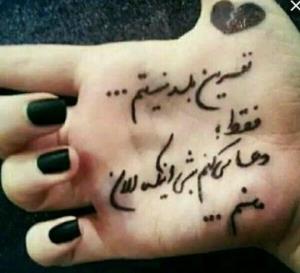 نفرین بلد نیستم ...
فقط؛
دعا می کنم بشی اینکه الان
منم ...